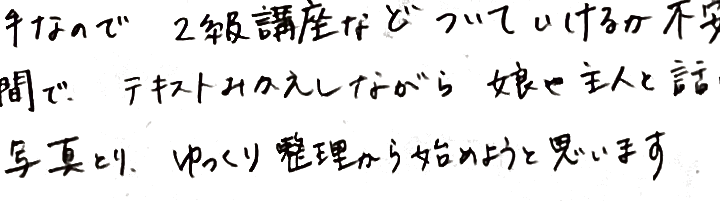 手なので 2級講座など ついていけるか 不安
間で、テキストみかえしながら 娘や主人と話
写真とり、ゆっくり整理から始めようと思います